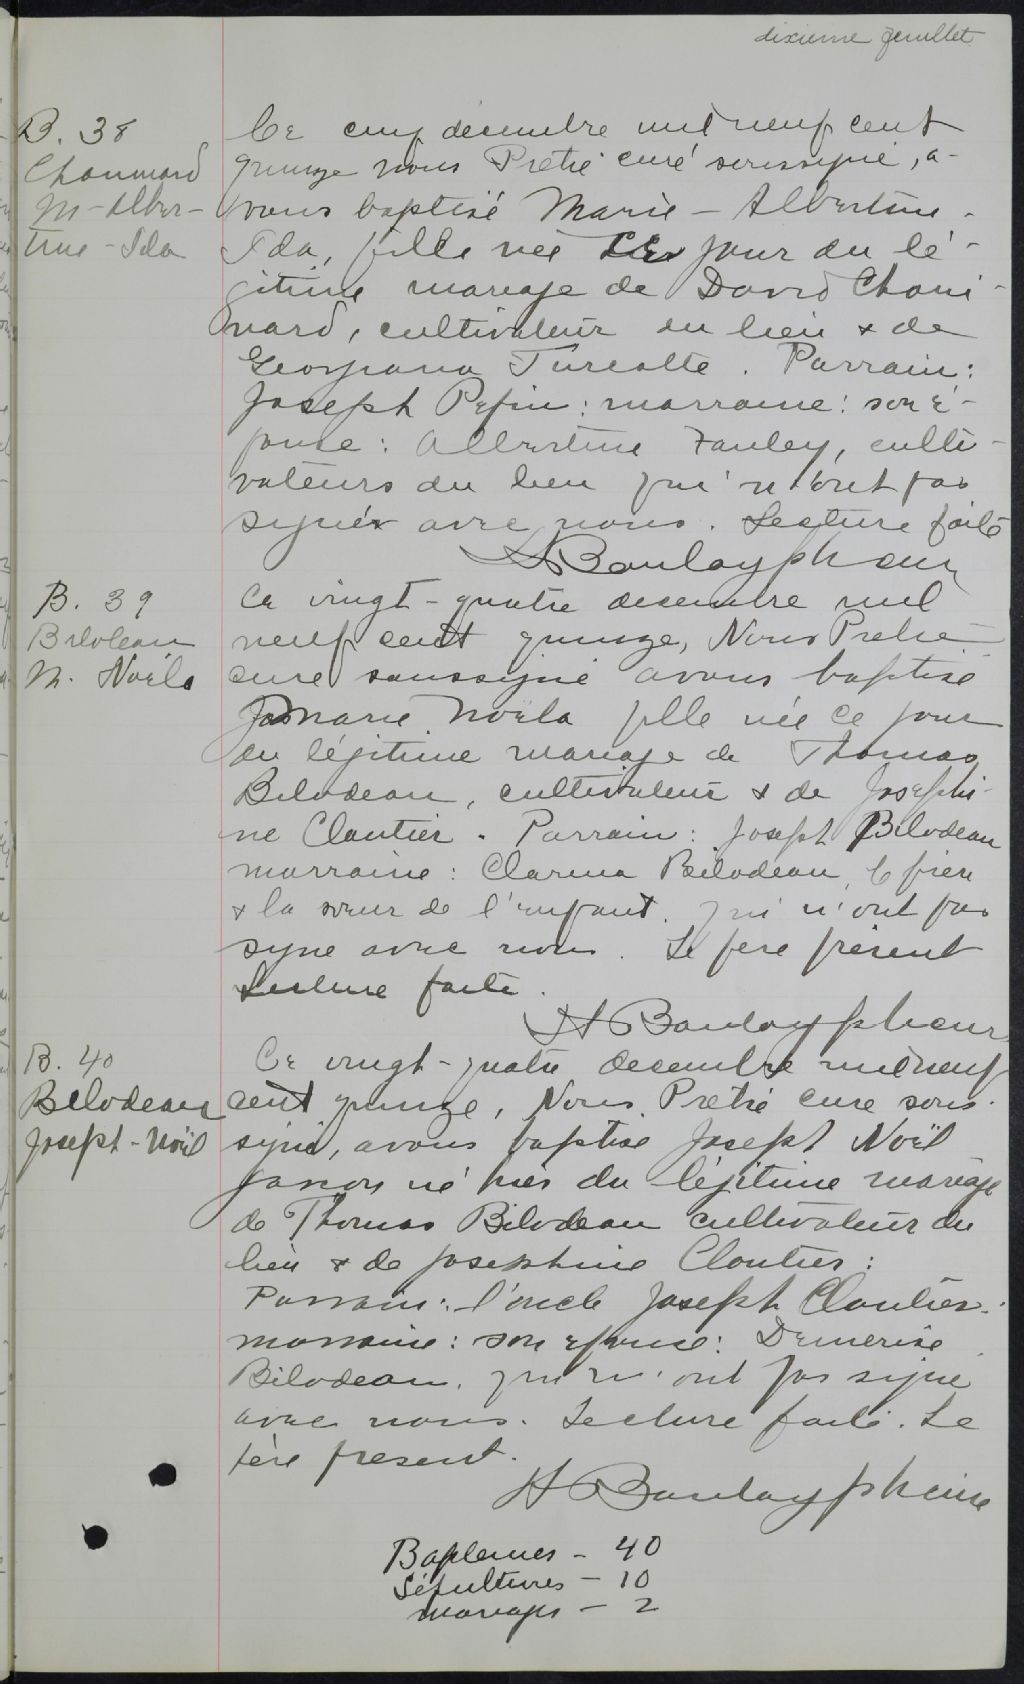 dixieme feuillet
B. 38
Chouinard
M-Alber-
tine-Ida
Ce cinq décembre mil neuf cent
quinze nous Prêtre curé soussigné, a-
vons baptisé Marie-Albertine-
Ida, fille née ce jour du lé-
gitime mariage de David Choui-
nard, cultivateur du lieu & de
Georgiana Turcotte. Parrain:
Joseph Pepin: marraine: son é-
pouse: Albertine, culti-
vateurs du lieu qui n'ont pas
signés avec nous. Lecture faite
H Boulay ptre cure
B. 39
Bilodeau
M. Noëla
Ce vingt-quatre decembre mil
neuf cent quinze, Nous Pretre
cure soussigné avons baptisé
Marie Noëla fille née ce jour
du légitime mariage de Thomas
Bilodeau, cultivateur & de Josephi-
ne Cloutier. Parrain: Joseph Bilodeau
marraine: Clarina Bilodeau, le frère
& la sœur de l'enfant. qui n'ont pas
signe avec nous. Le pere présent
Lecture faite.
H Boulay ptre cure
B. 40
Bilodeau
Joseph-Noël
Ce vingt-quatre decembre mil neuf
cent quinze, Nous Prêtre cure sous-
signé, avons baptise Joseph Noël
garçon né hier du légitime mariage
de Thomas Bilodeau cultivateur du
lieu & de Josephine Cloutier:
Parrain: l'oncle Joseph Cloutier:
marraine: son epouse: Demerise
Bilodeau. qui n'ont pas signe
avec nous. Lecture faite. Le
père present.
H Boulay ptre cure
Baptemes - 40
Sépultures - 10
mariages - 2